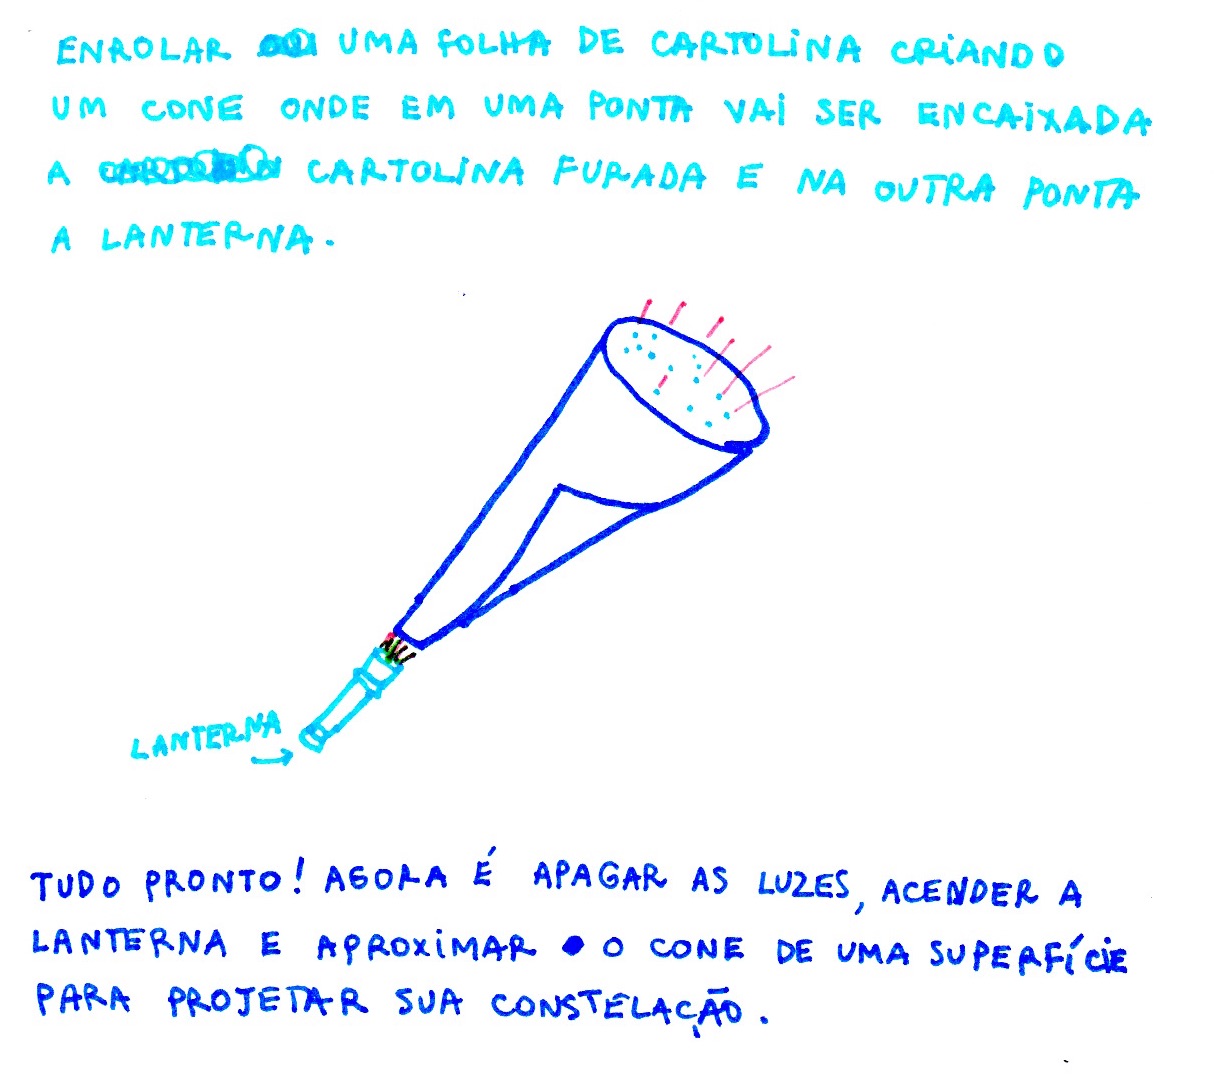 ENROLAR UMA FOLHA DE CARTOLINA CRIANDO
UM CONE ONDE EM UMA PONTA VAI SER ENCAIXADA
A CARTOLINA FURADA E NA OUTRA PONTA
A LANTERNA.
LANTERNA
TUDO PRONTO! AGORA É APAGAR AS LUZES, ACENDER A
LANTERNA E APROXIMAR O CONE DE UMA SUPERFÍCIE
PARA PROJETAR SUA CONSTELAÇÃO.